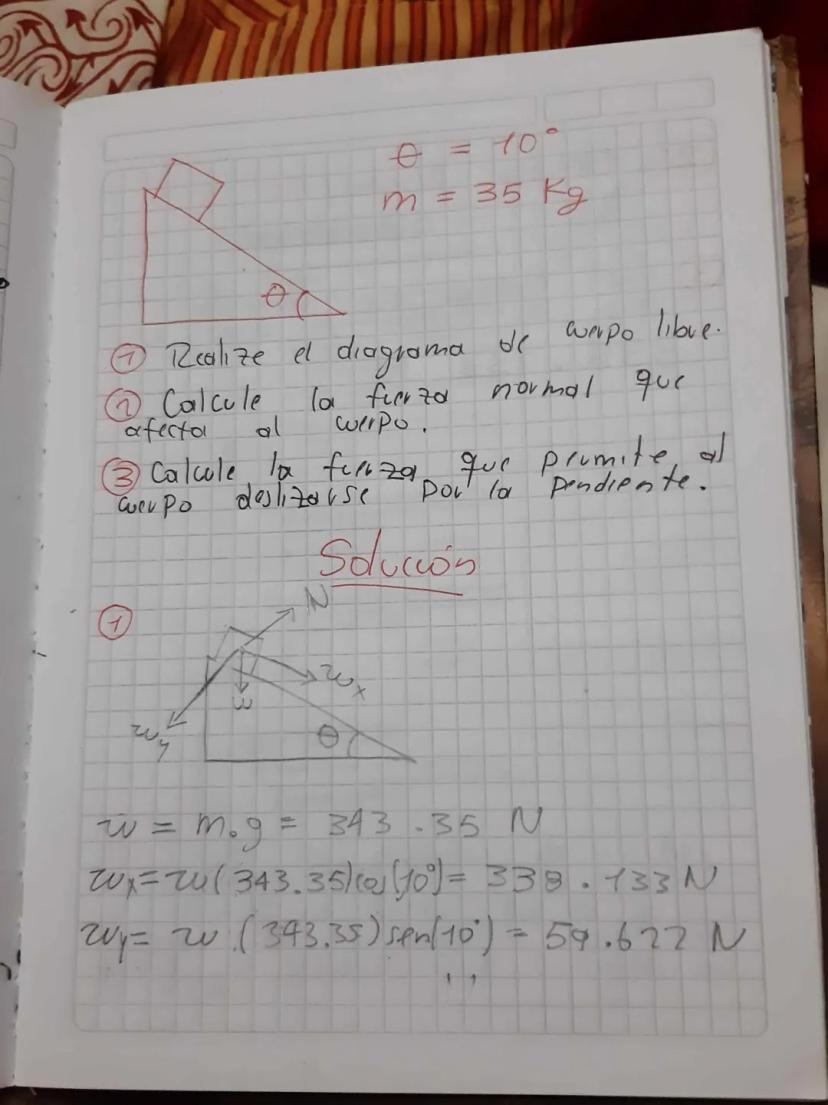 θ = 10°
m = 35 Kg
θ
① Realize el diagrama de cuerpo libre.
② Calcule la fuerza normal que
afecta al cuerpo.
③ Calcule la fuerza que prumite al
cuerpo deslizarse por la pendiente.
Solución
①
N
wx
w
wy
θ
w = m.g = 343.35 N
wx = w(343.35)cos(10°) = 338.133 N
wy = w.(343.35)sen(10°) = 59.622 N